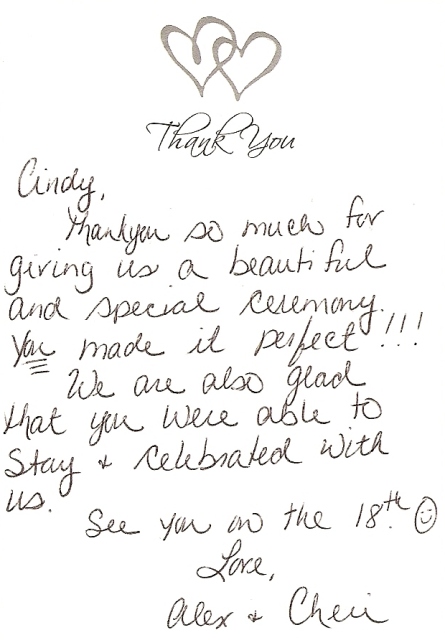 Thank You
Cindy,
Thankyou so much for
giving us a beautiful
and special ceremony.
You made it perfect!!!
We are also glad
that you were able to
Stay + celebrated with
us.
See you on the 18th. ☺
Love,
Alex + Cheri